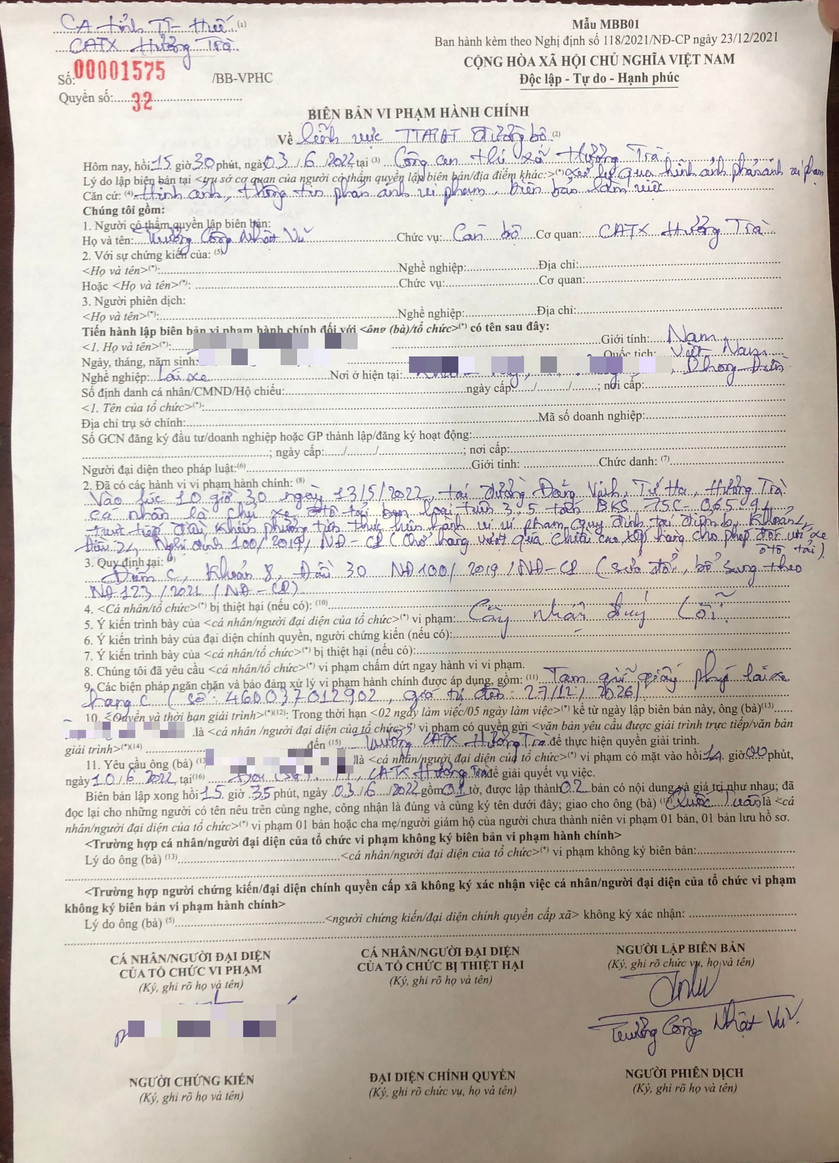 CA tỉnh TT Huế (1)
CATX Hương Trà
Số: 00001575 /BB-VPHC
Quyển số: 32
Mẫu MBB01
Ban hành kèm theo Nghị định số 118/2021/NĐ-CP ngày 23/12/2021
CỘNG HÒA XÃ HỘI CHỦ NGHĨA VIỆT NAM
Độc lập - Tự do - Hạnh phúc
BIÊN BẢN VI PHẠM HÀNH CHÍNH
Về lĩnh vực TTATGT đường bộ (2)
Hôm nay, hồi 15 giờ 30 phút, ngày 03/6/2022 tại (3) Công an thị xã Hương Trà
Lý do lập biên bản tại <trụ sở cơ quan của người có thẩm quyền lập biên bản/địa điểm khác:>(*) xử lý qua hình ảnh phản ánh vi phạm
Căn cứ: (4) Hình ảnh, thông tin phản ánh vi phạm, biên bản làm việc
Chúng tôi gồm:
1. Người có thẩm quyền lập biên bản:
Họ và tên: Trương Công Nhật Vũ Chức vụ: Cán bộ Cơ quan: CATX Hương Trà
2. Với sự chứng kiến của: (5)
<Họ và tên>(*): Nghề nghiệp: Địa chỉ:
Hoặc <Họ và tên>(*): Chức vụ: Cơ quan:
3. Người phiên dịch:
<Họ và tên>(*): Nghề nghiệp: Địa chỉ:
Tiến hành lập biên bản vi phạm hành chính đối với <ông (bà)/tổ chức>(*) có tên sau đây:
<1. Họ và tên>(*): Giới tính: Nam
Ngày, tháng, năm sinh: Quốc tịch: Việt Nam
Nghề nghiệp: Lái xe Nơi ở hiện tại: Phong Điền
Số định danh cá nhân/CMND/Hộ chiếu: ngày cấp: / / ; nơi cấp:
<1. Tên của tổ chức>(*):
Địa chỉ trụ sở chính: Mã số doanh nghiệp:
Số GCN đăng ký đầu tư/doanh nghiệp hoặc GP thành lập/đăng ký hoạt động:
; ngày cấp: / / ; nơi cấp:
Người đại diện theo pháp luật:(6) Giới tính: Chức danh: (7)
2. Đã có các hành vi vi phạm hành chính: (8)
Vào lúc 10 giờ 30 ngày 13/5/2022, tại đường Đặng Vinh, Tứ Hạ, Hương Trà
cá nhân là chủ xe ô tô tải ben loại trên 3.5 tấn BKS 75C-065.94
trực tiếp điều khiển phương tiện thực hiện hành vi vi phạm quy định tại điểm b, khoản 4,
Điều 24, Nghị định 100/2019/NĐ-CP (Chở hàng vượt quá chiều cao xếp hàng cho phép đối với xe
ô tô tải).
3. Quy định tại: (9)
Điểm c, Khoản 8, Điều 30 NĐ100/2019/NĐ-CP (sửa đổi, bổ sung theo
NĐ123/2021/NĐ-CP)
4. <Cá nhân/tổ chức>(*) bị thiệt hại (nếu có): (10)
5. Ý kiến trình bày của <cá nhân/người đại diện của tổ chức>(*) vi phạm:
6. Ý kiến trình bày của đại diện chính quyền, người chứng kiến (nếu có):
7. Ý kiến trình bày của <cá nhân/tổ chức>(*) bị thiệt hại (nếu có):
8. Chúng tôi đã yêu cầu <cá nhân/tổ chức>(*) vi phạm chấm dứt ngay hành vi vi phạm.
9. Các biện pháp ngăn chặn và bảo đảm xử lý vi phạm hành chính được áp dụng, gồm: (11) Tạm giữ giấy phép lái xe
hạng C (số: 460037012902, giá trị đến: 27/12/2026)
10. <Quyền và thời hạn giải trình>(*)(12): Trong thời hạn <02 ngày làm việc/05 ngày làm việc>(*) kể từ ngày lập biên bản này, ông (bà)(13)
là <cá nhân/người đại diện của tổ chức>(*) vi phạm có quyền gửi <văn bản yêu cầu được giải trình trực tiếp/văn bản
giải trình>(*)(14) đến (15) Trưởng CATX Hương Trà để thực hiện quyền giải trình.
11. Yêu cầu ông (bà) (13) là <cá nhân/người đại diện của tổ chức>(*) vi phạm có mặt vào hồi 14 giờ 00 phút,
ngày 10/6/2022 tại(16) CATX Hương Trà để giải quyết vụ việc.
Biên bản lập xong hồi 15 giờ 35 phút, ngày 03/6/2022 gồm 01 tờ, được lập thành 02 bản có nội dung và giá trị như nhau; đã
đọc lại cho những người có tên nêu trên cùng nghe, công nhận là đúng và cùng ký tên dưới đây; giao cho ông (bà) (13) Quốc Tuấn là <cá
nhân/người đại diện của tổ chức>(*) vi phạm 01 bản hoặc cha mẹ/người giám hộ của người chưa thành niên vi phạm 01 bản, 01 bản lưu hồ sơ.
<Trường hợp cá nhân/người đại diện của tổ chức vi phạm không ký biên bản vi phạm hành chính>
Lý do ông (bà) (13) <cá nhân/người đại diện của tổ chức>(*) vi phạm không ký biên bản:
<Trường hợp người chứng kiến/đại diện chính quyền cấp xã không ký xác nhận việc cá nhân/người đại diện của tổ chức vi phạm
không ký biên bản vi phạm hành chính>
Lý do ông (bà) (5) <người chứng kiến/đại diện chính quyền cấp xã> không ký xác nhận:
CÁ NHÂN/NGƯỜI ĐẠI DIỆN
CỦA TỔ CHỨC VI PHẠM
(Ký, ghi rõ họ và tên)
CÁ NHÂN/NGƯỜI ĐẠI DIỆN
CỦA TỔ CHỨC BỊ THIỆT HẠI
(Ký, ghi rõ họ và tên)
NGƯỜI LẬP BIÊN BẢN
(Ký, ghi rõ chức vụ, họ và tên)
Trương Công Nhật Vũ
NGƯỜI CHỨNG KIẾN
(Ký, ghi rõ họ và tên)
ĐẠI DIỆN CHÍNH QUYỀN
(Ký, ghi rõ chức vụ, họ và tên)
NGƯỜI PHIÊN DỊCH
(Ký, ghi rõ họ và tên)